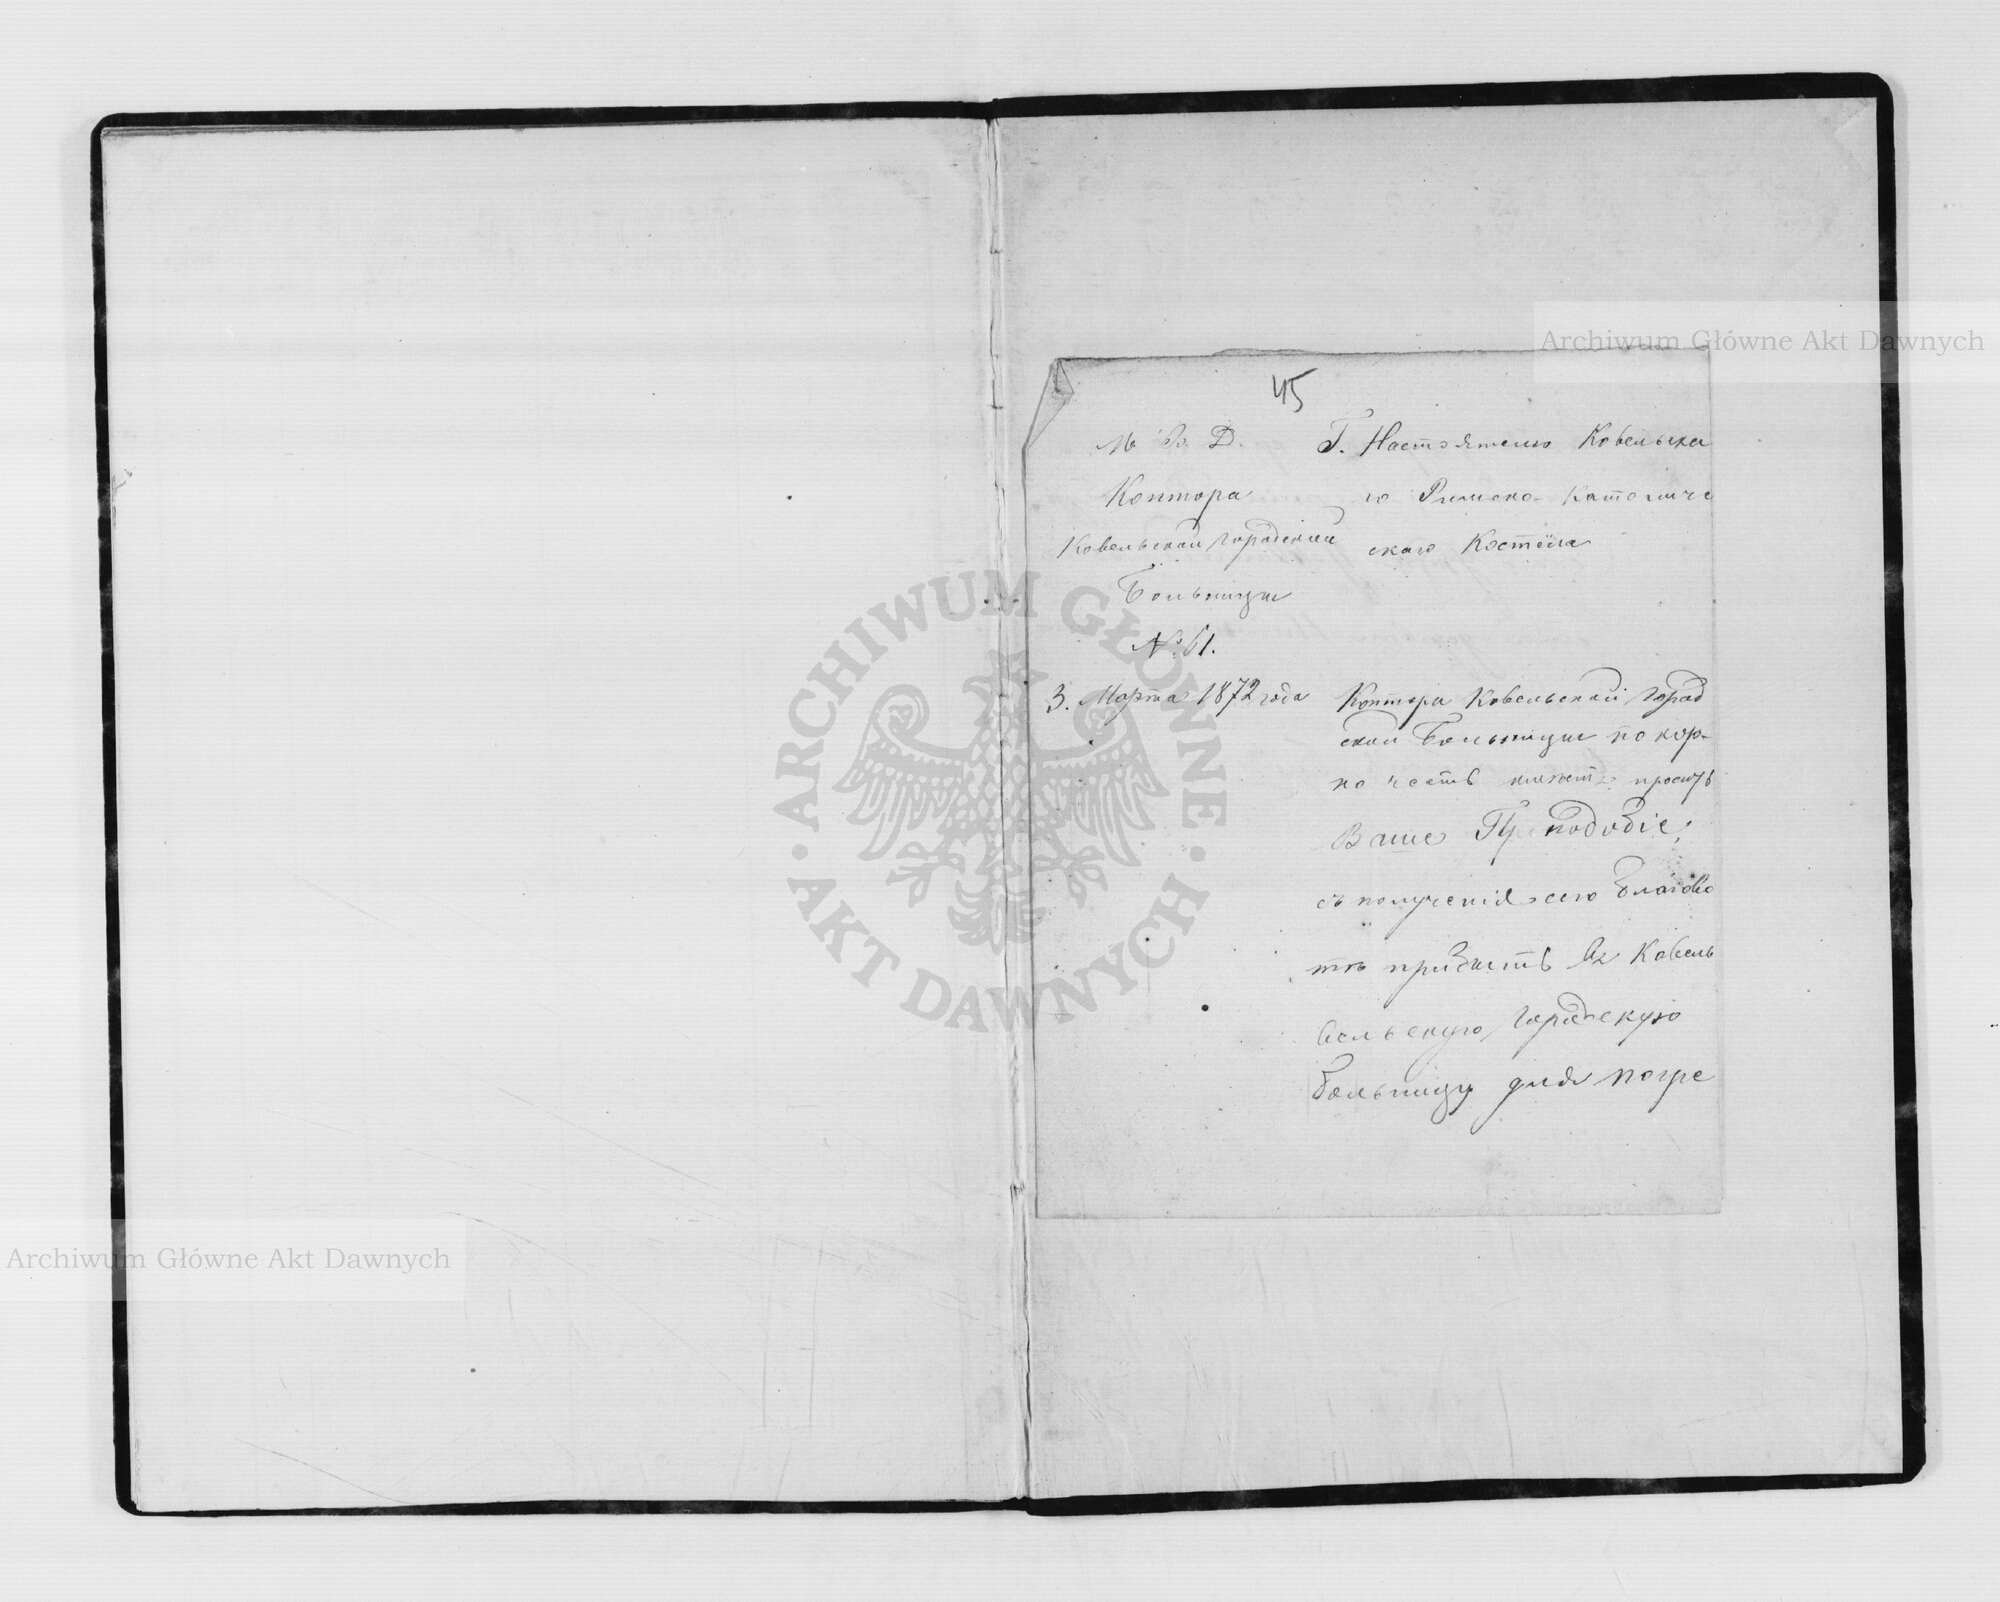 45
М. В. Д.
Контора
Ковельской городской
Больницы
№ 61.
3. Марта 1872 года
Г. Настоятелю Ковельска
го Римско-Католиче
скаго Костёла
Контора Ковельской Город
ской Больницы покор-
но честь имѣетъ просить
Ваше Преподобіе,
съ полученія сего благово
ить прибыть въ Ковель
вельскую городскую
больницу для погре
Archiwum Główne Akt Dawnych
Archiwum Główne Akt Dawnych
ARCHIWUM GŁÓWNE AKT DAWNYCH